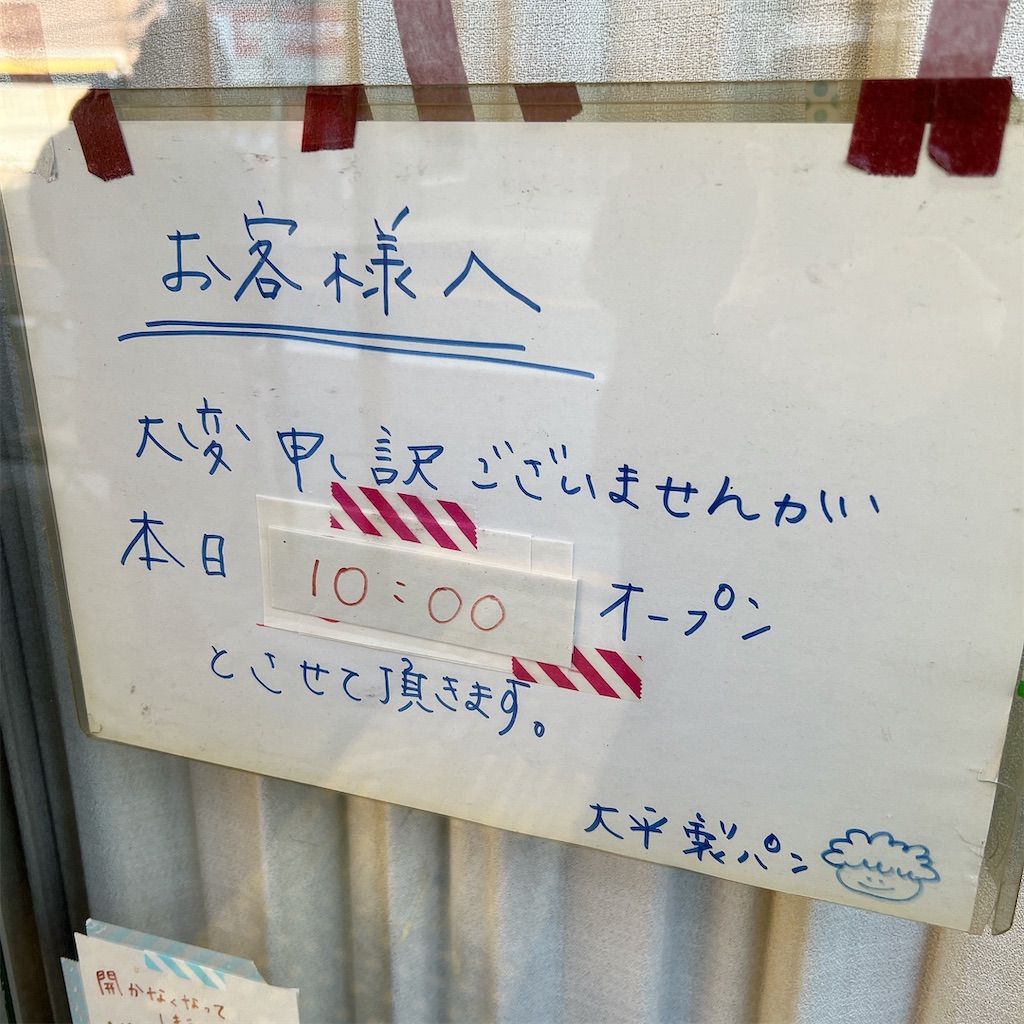 お客様へ
大変申し訳ございませんが
本日 10:00 オープン
とさせて頂きます。
大平製パン
開かなくなって